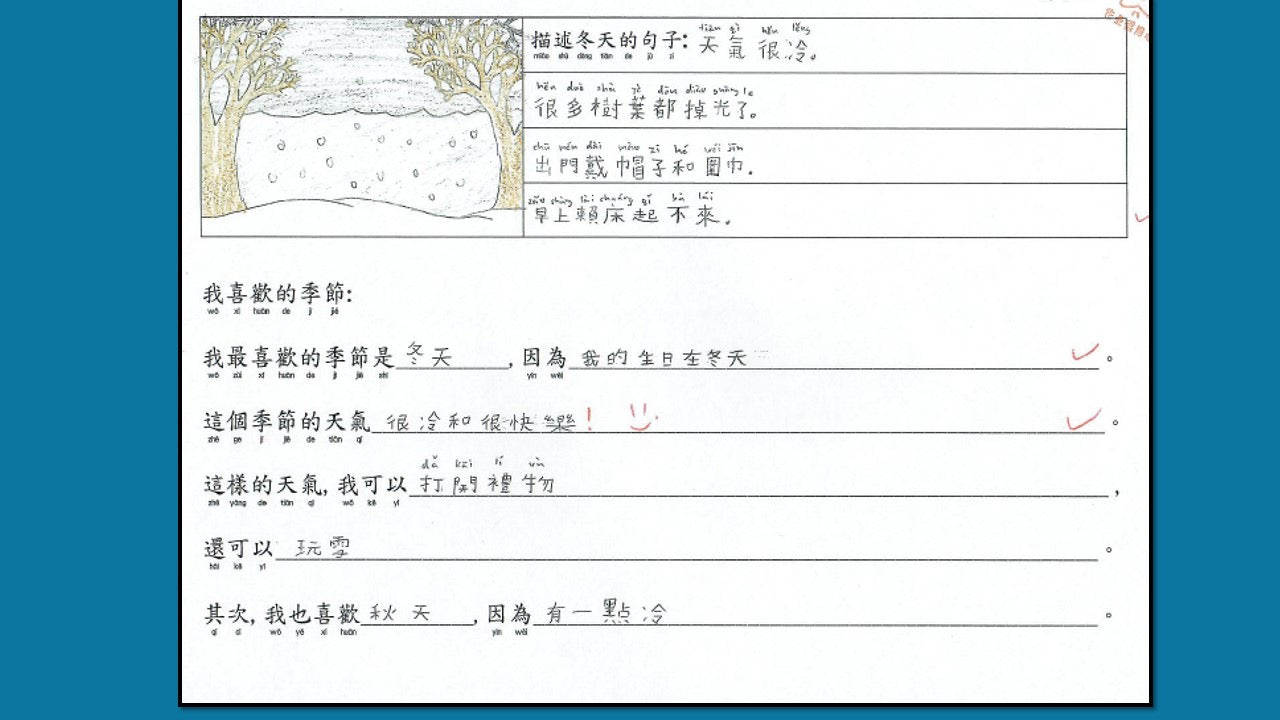 描述冬天的句子: 天氣很冷。
miáo shù dōng tiān de jù zi tiān qì hěn lěng
hěn duō shù yè dōu diào guāng le
很多樹葉都掉光了。
chū mén dài mào zi hé wéi jīn
出門戴帽子和圍巾.
zǎo shàng lài chuáng qǐ bù lái
早上賴床起不來.
我喜歡的季節:
wǒ xǐ huān de jì jié
我最喜歡的季節是冬天, 因為我的生日在冬天。
wǒ zuì xǐ huān de jì jié shì yīn wèi
這個季節的天氣很冷和很快樂!。
zhè ge jì jié de tiān qì
dǎ kāi lǐ wù
這樣的天氣, 我可以打開禮物,
zhè yàng de tiān qì wǒ kě yǐ
還可以玩雪。
hái kě yǐ
其次, 我也喜歡秋天, 因為有一點冷。
qí cì wǒ yě xǐ huān yīn wèi